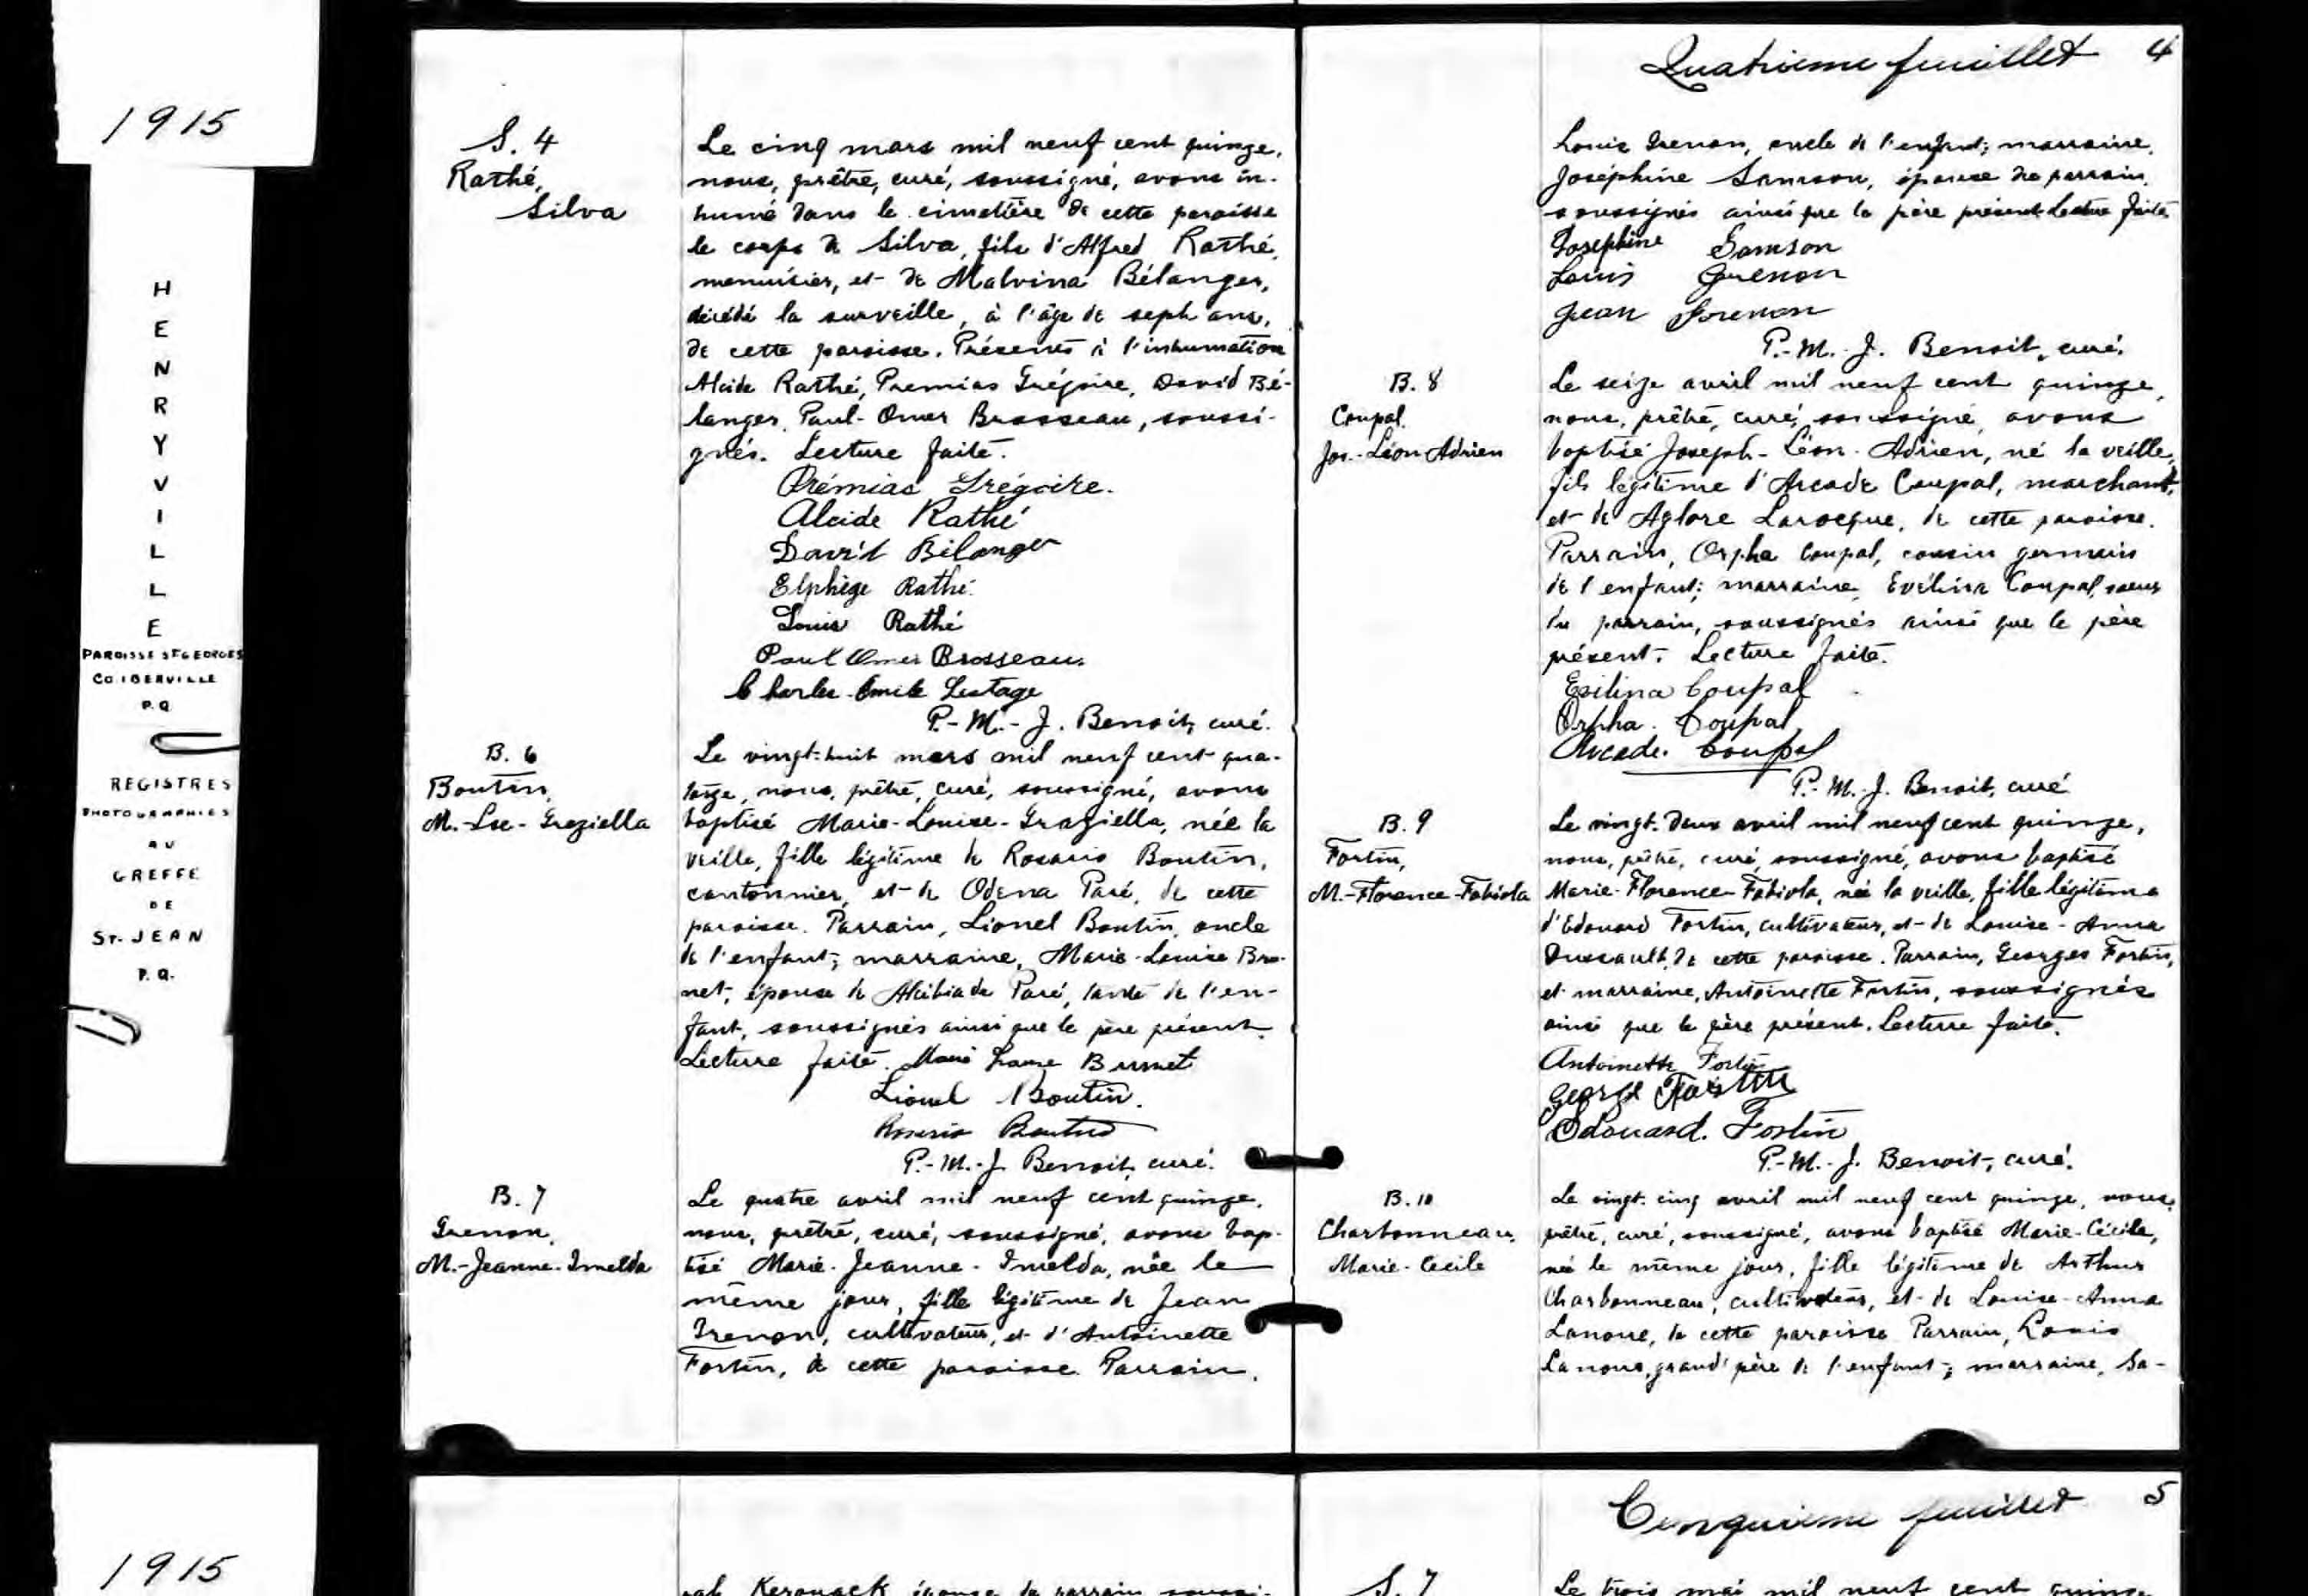 1915
HENRYVILLE
PAROISSE ST GEORGES
CO. IBERVILLE
P.Q.
REGISTRES
PHOTOGRAPHIES
AU
GREFFE
DE
ST-JEAN
P.Q.
1915
S. 4
Rathé,
Silva
Le cinq mars mil neuf cent quinze,
nous, prêtre, curé, soussigné, avons in-
humé dans le cimetière de cette paroisse
le corps de Silva, fils d'Alfred Rathé,
menuisier, et de Malvina Bélanger,
décédé la surveille, à l'âge de sept ans,
de cette paroisse. Présents à l'inhumation
Alcide Rathé, Premias Grégoire, David Bé-
langer, Paul-Omer Brosseau, soussi-
gnés. Lecture faite.
Prémias Grégoire.
Alcide Rathé
David Bélanger
Elphège Rathé
Louis Rathé
Paul Omer Brosseau.
Charles-Emile Lestage
P.-M.-J. Benoit, curé.
B. 6
Boutin,
M.-Lse-Graziella
Le vingt-huit mars mil neuf cent qua-
torze, nous, prêtre, curé, soussigné, avons
baptisé Marie-Louise-Graziella, née la
veille, fille légitime de Rosario Boutin,
cantonnier, et de Odena Paré, de cette
paroisse. Parrain, Lionel Boutin, oncle
de l'enfant; marraine, Marie-Louise Bru-
net, épouse de Alcibiade Paré, tante de l'en-
fant, soussignés ainsi que le père présent.
Lecture faite. Marie Louise Brunet
Lionel Boutin.
Rosario Boutin
P.-M.-J. Benoit, curé.
B. 7
Grenon,
M.-Jeanne-Imelda
Le quatre avril mil neuf cent quinze,
nous, prêtre, curé, soussigné, avons bap-
tisé Marie-Jeanne-Imelda, née le
même jour, fille légitime de Jean
Grenon, cultivateur, et d'Antoinette
Fortin, de cette paroisse. Parrain,
Quatrieme feuillet 4
Louis Grenon, oncle de l'enfant; marraine,
Joséphine Samson, épouse du parrain,
soussignés ainsi que le père présent. Lecture faite.
Josephine Samson
Louis Grenon
Jean Grenon
P.-M.-J. Benoit, curé.
B. 8
Coupal,
Jos.-Léon-Adrien
Le seize avril mil neuf cent quinze,
nous, prêtre, curé, soussigné, avons
baptisé Joseph-Léon-Adrien, né la veille,
fils légitime d'Arcade Coupal, marchand,
et de Aglore Larocque, de cette paroisse.
Parrain, Orpha Coupal, cousin germain
de l'enfant; marraine, Evélina Coupal, sœur
du parrain, soussignés ainsi que le père
présent. Lecture faite.
Evilina Coupal
Orpha Coupal
Arcade Coupal
P.-M.-J. Benoit, curé
B. 9
Fortin,
M.-Florence-Fabiola
Le vingt-deux avril mil neuf cent quinze,
nous, prêtre, curé, soussigné, avons baptisé
Marie-Florence-Fabiola, née la veille, fille légitime
d'Edouard Fortin, cultivateur, et de Louise-Anna
Dussault, de cette paroisse. Parrain, Georges Fortin,
et marraine, Antoinette Fortin, soussignés
ainsi que le père présent. Lecture faite.
Antoinette Fortin
George Fortin
Edouard. Fortin
P.-M.-J. Benoit, curé.
B. 10
Charbonneau,
Marie-Cécile
Le vingt-cinq avril mil neuf cent quinze, nous,
prêtre, curé, soussigné, avons baptisé Marie-Cécile,
née le même jour, fille légitime de Arthur
Charbonneau, cultivateur, et de Louise-Anna
Lanoue, de cette paroisse. Parrain, Louis
Lanoue, grand'père de l'enfant; marraine, Sa-
Cinquieme feuillet 5
rah Kerouack épouse du parrain soussi-
S. 7
Le trois mai mil neuf cent quinze